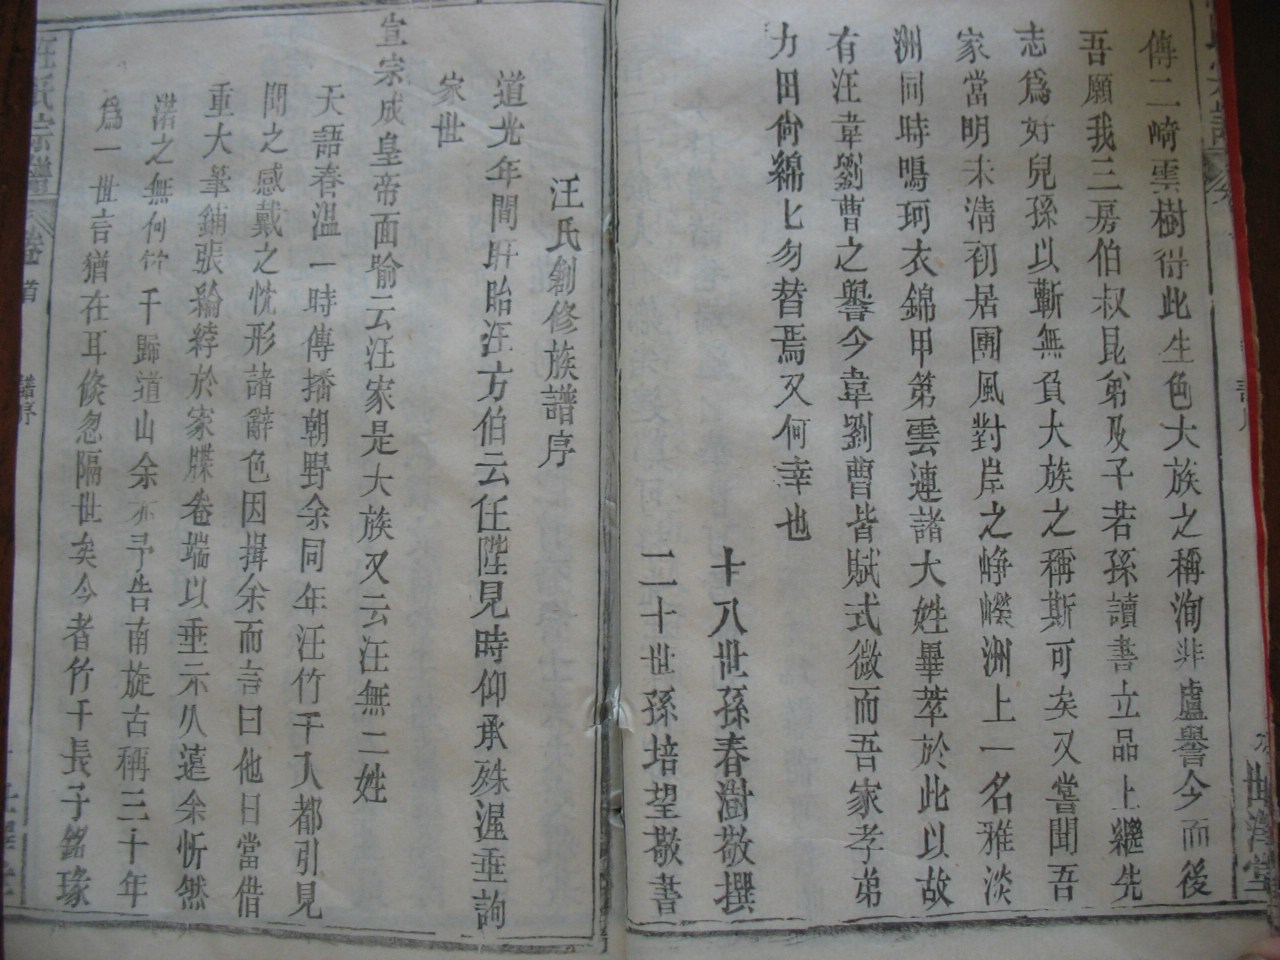 傳二崎雲樹得此生色大族之稱洵非虛譽今而後
吾願我三房伯叔昆弟及子若孫讀書立品上繼先
志爲好兒孫以蘄無負大族之稱斯可矣又嘗聞吾
家當明末淸初居團風對岸之崢嶸洲上一名雅淡
洲同時鳴珂衣錦甲第雲連諸大姓畢萃於此以故
有汪韋劉曹之譽今韋劉曹皆賦式微而吾家孝弟
力田尙綿匕勿替焉又何幸也
十八世孫春澍敬撰
二十世孫培望敬書
汪氏創修族譜序
道光年間盱眙汪方伯云任陛見時仰承殊渥垂詢
家世
宣宗成皇帝面諭云汪家是大族又云汪無二姓
天語春溫一時傳播朝野余同年汪竹千入都引見
聞之感戴之忱形諸辭色因揖余而言曰他日當借
重大筆鋪張綸綍於家牒卷端以垂示久遠余忻然
諾之無何竹千歸道山余亦予告南旋古稱三十年
爲一世言猶在耳倏忽隔世矣今者竹千長子銘瑑
汪氏宗譜
卷首
譜序
世澤堂